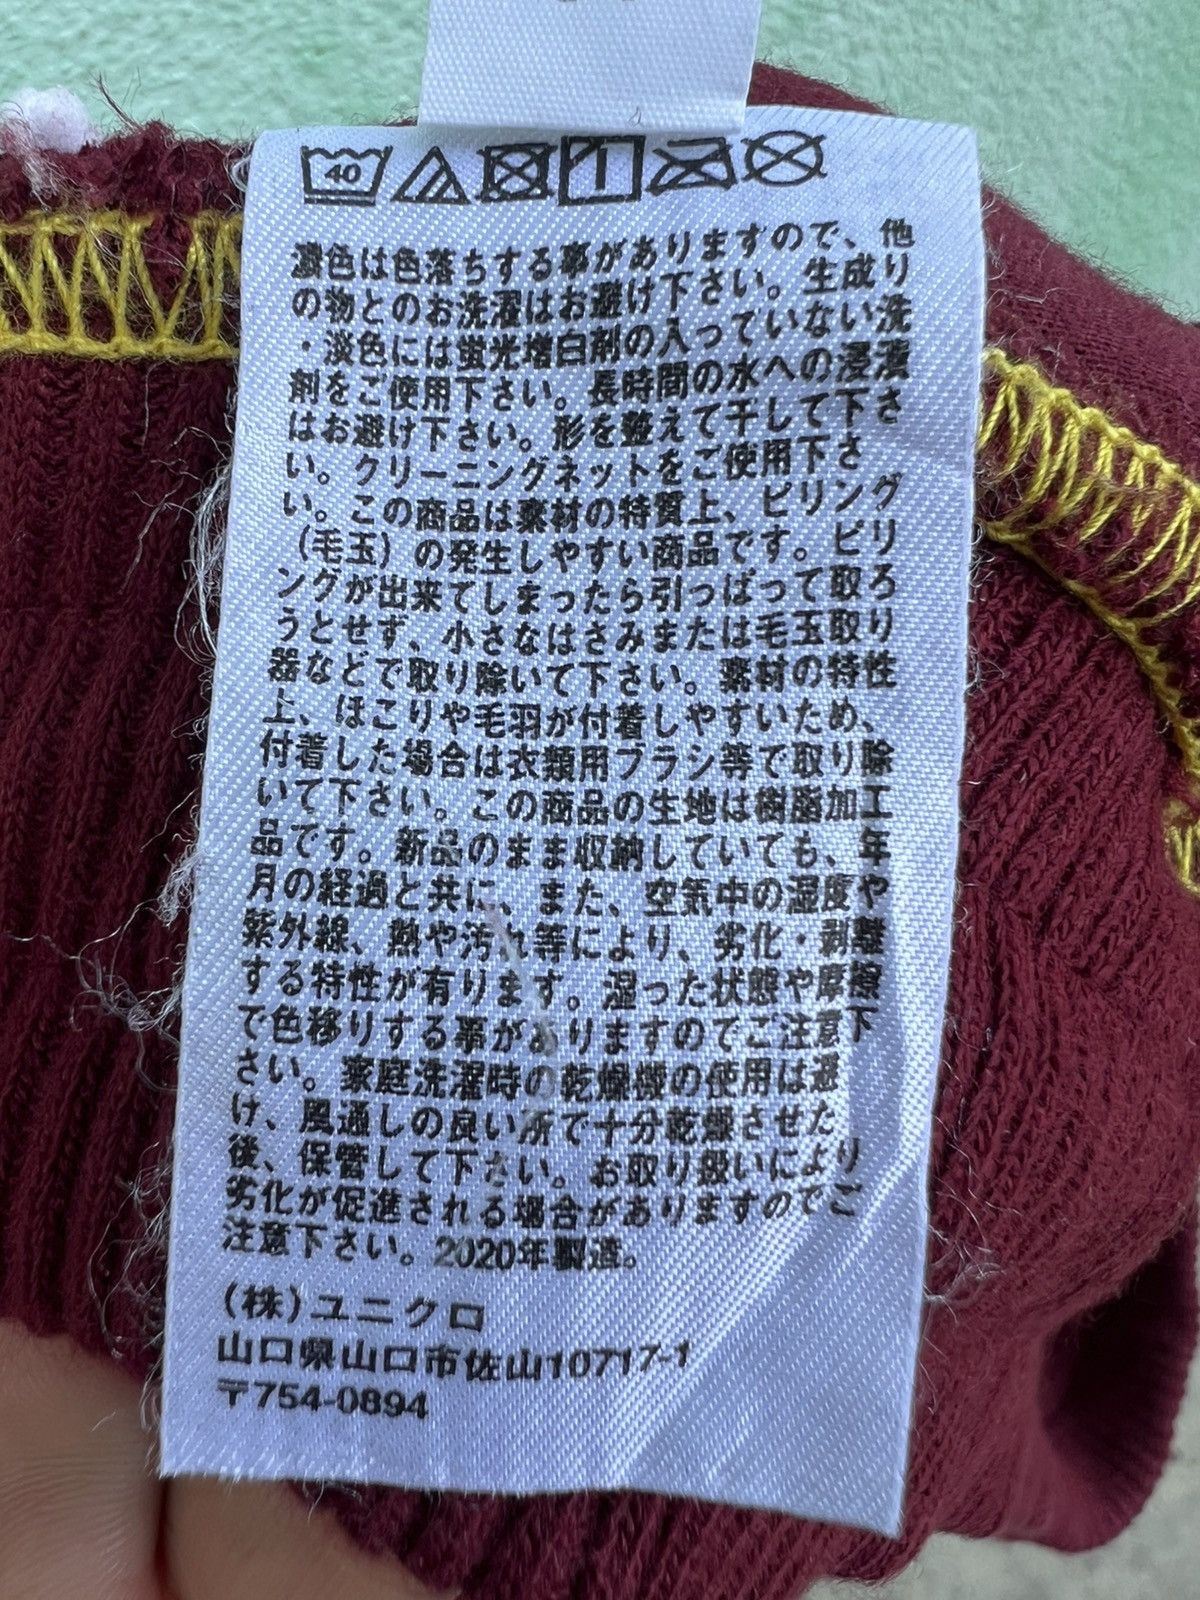 40
濃色は色落ちする事がありますので、他
の物とのお洗濯はお避け下さい。生成り
・淡色には蛍光増白剤の入っていない洗
剤をご使用下さい。長時間の水への浸漬
はお避け下さい。形を整えて干して下さ
い。クリーニングネットをご使用下さ
い。この商品は素材の特質上、ピリング
(毛玉)の発生しやすい商品です。ピリ
ングが出来てしまったら引っぱって取ろ
うとせず、小さなはさみまたは毛玉取り
器などで取り除いて下さい。素材の特性
上、ほこりや毛羽が付着しやすいため、
付着した場合は衣類用ブラシ等で取り除
いて下さい。この商品の生地は樹脂加工
品です。新品のまま収納していても、年
月の経過と共に、また、空気中の湿度や
紫外線、熱や汚れ等により、劣化・剥離
する特性が有ります。湿った状態や摩擦
で色移りする事がありますのでご注意下
さい。家庭洗濯時の乾燥機の使用は避
け、風通しの良い所で十分乾燥させた
後、保管して下さい。お取り扱いにより
劣化が促進される場合がありますのでご
注意下さい。2020年製造。
(株)ユニクロ
山口県山口市佐山10717-1
〒754-0894